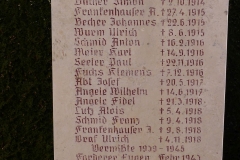 Simon † 2.10.1914
Frankenhauser A. † 27.4.1915
Becher Johannes † 22.6.1915
Wurm Ulrich † 8.6.1915
Schmid Anton † 16.2.1916
Maier Karl † 5.4.1916
Seeler Paul † 22.11.1916
Fuchs Klemens † 5.12.1916
Abt Josef † 20.5.1917
Angele Wilhelm † 14.6.1917
Angele Fidel † 21.3.1918
Lutz Alois † 5.4.1918
Schmid Franz † 9.4.1918
Frankenhauser J. † 2.9.1918
Graf Ulrich † 4.11.1918
Vermißte 1939 - 1945
Eugen 1943